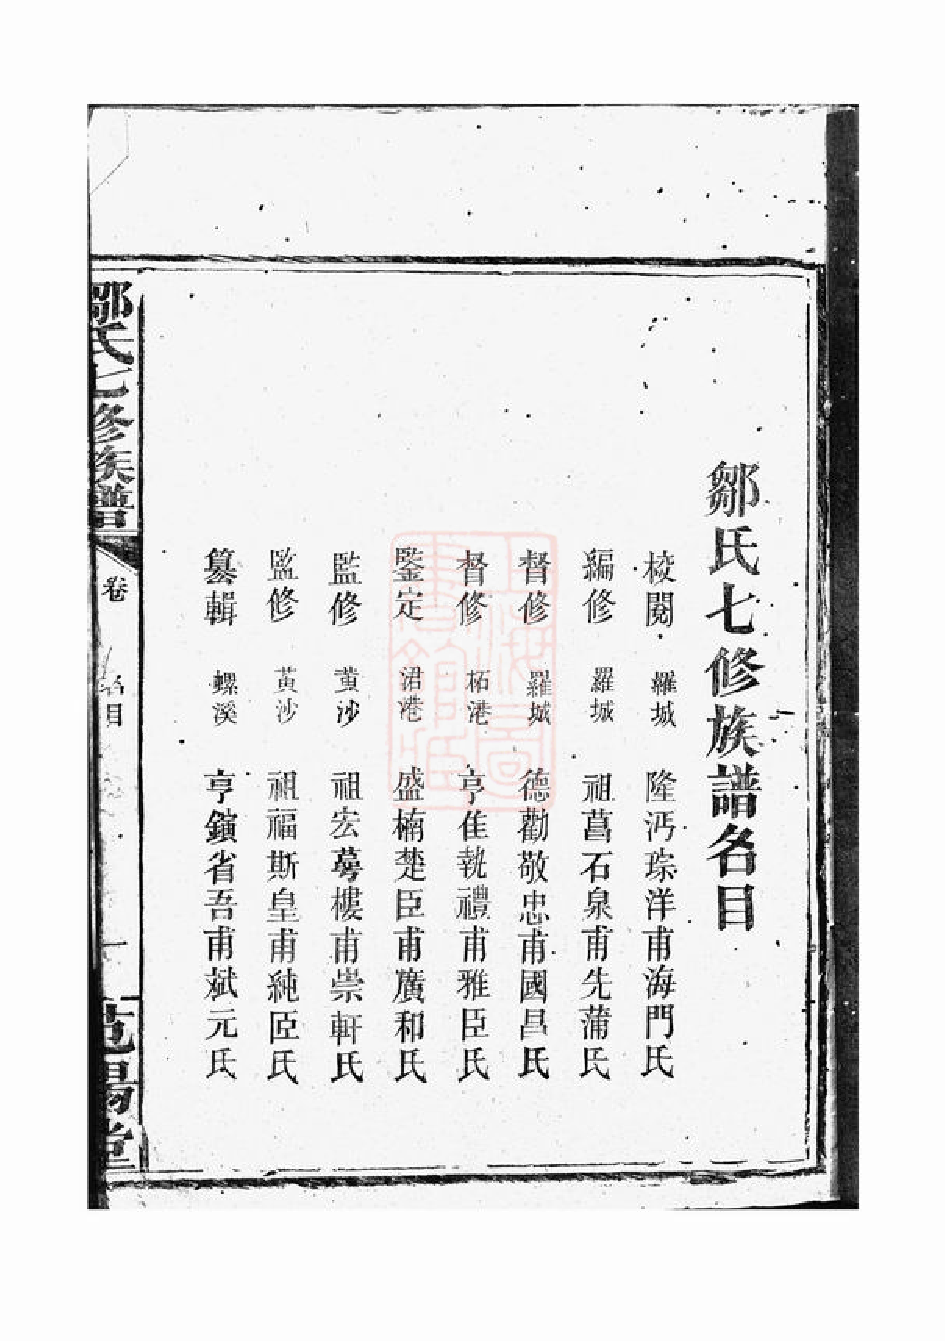 鄒氏七修族譜名目
校閱 羅城 隆沔琮洋甫海門氏
編修 羅城 祖菖石泉甫先蒲氏
督修 羅城 德勸敬忠甫國昌氏
督修 柘港 亨隹執禮甫雅臣氏
鑒定 涒港 盛楠楚臣甫廣和氏
監修 黃沙 祖宏萼樓甫崇軒氏
監修 黃沙 祖福斯皇甫純臣氏
纂輯 螺溪 亨鎮省吾甫斌元氏
鄒氏七修族譜
卷 名目
一
范陽堂